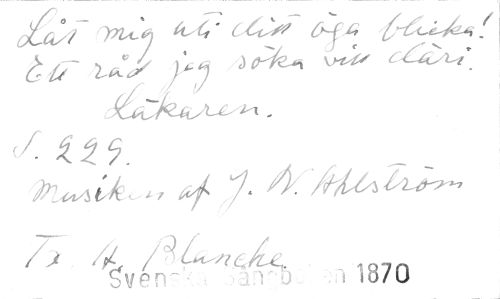 Låt mig uti ditt öga blicka!
Ett råd jag söka vill däri.
Läkaren.
S. 229.
Musiken af J. N. Ahlström
Tx. A. Blanche
Svenska Sångboken 1870